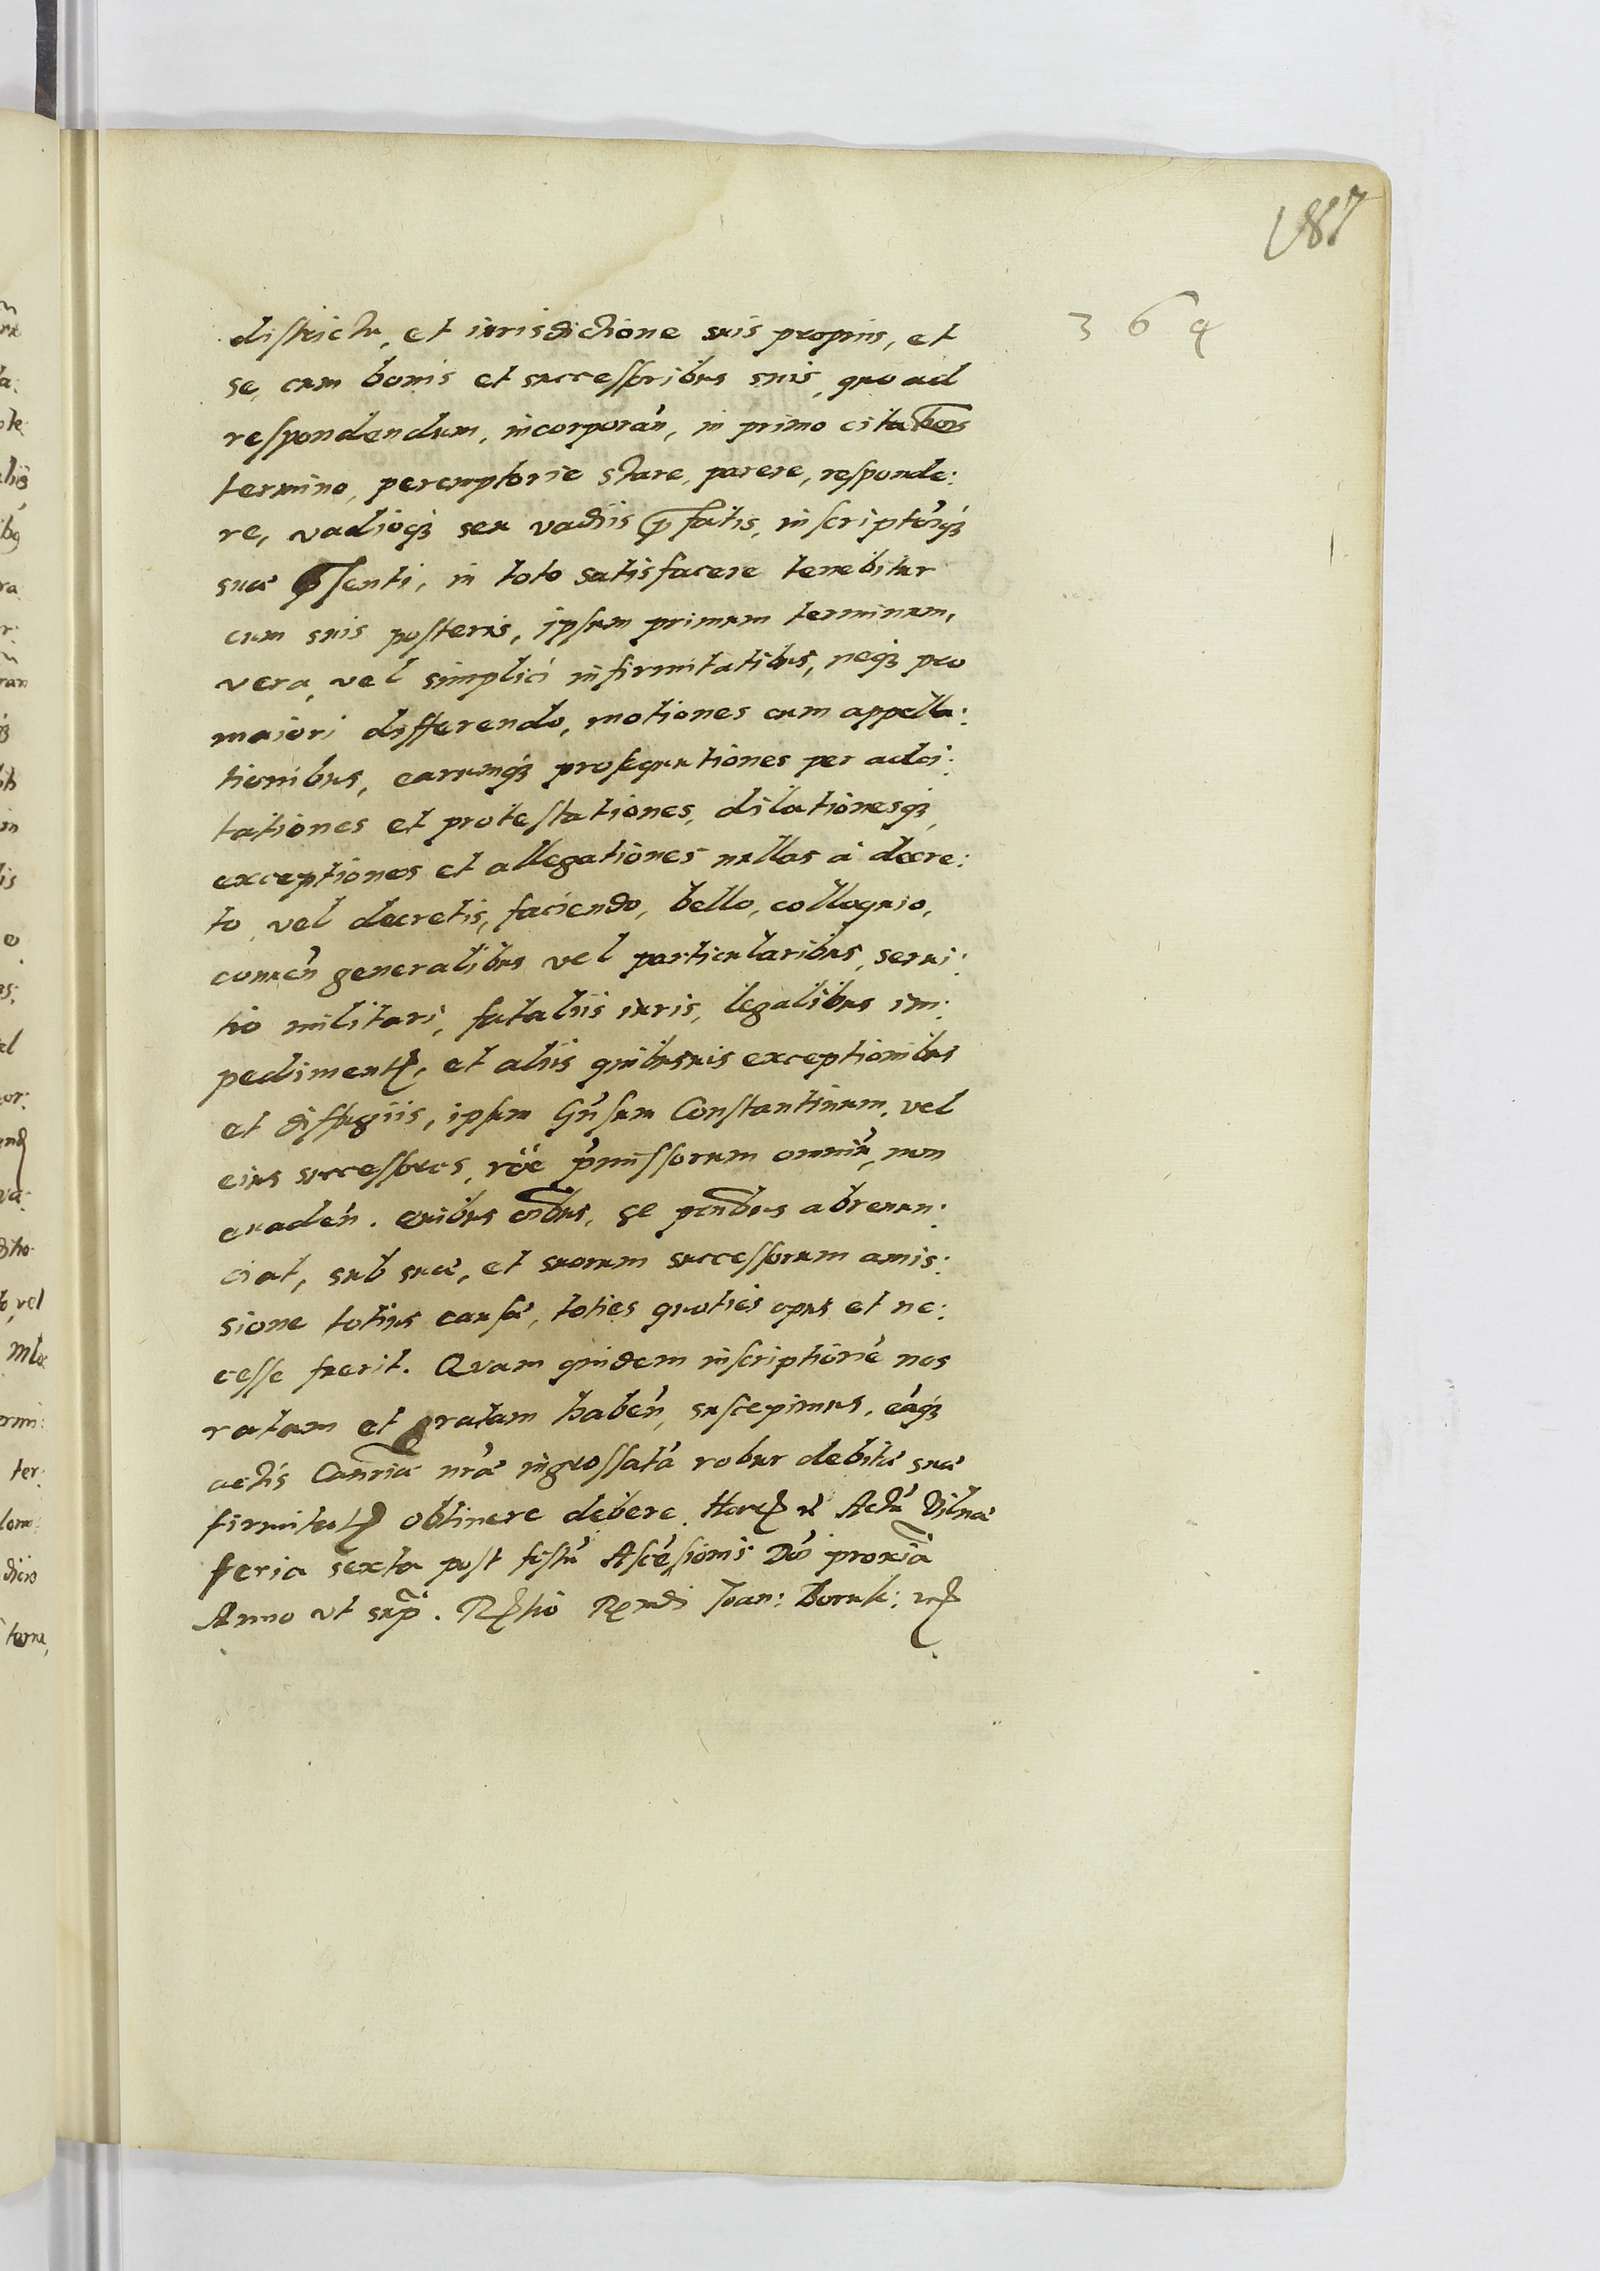 187
369
districtu, et iurisdictione suis proprijs, et
se, cum bonis et successoribus suis, quoad
respondendum, incorporań, in primo citationis
termino, peremptorie stare, parere, responde:
re, vadioqʒ seu vadiis p̄fatis, inscriptoíqʒ
suæ p̄senti, in toto satisfacere tenebitur
cum suis posteris, ipsum primum terminum,
vera, vel simplici infirmitatibus, neqʒ pro
maiori differendo, motiones cum appella:
tionibus, earumqʒ prosequutiones per adci:
tationes et protestationes, dilationesqʒ,
exceptiones et allegationes nullas à decre:
to, vel decretis, faciendo, bello, colloquio,
conuen̄ generalibus vel particularibus, serui:
tio militari, fataliis iuris, legalibus im:
pedimentꝭ, et aliis quibusuis exceptionibus
et diffugiis, ipsum Gn̄sum Constantinum, vel
eius successores, rõe p̄missorum omniũ, non
euaden̄. Quibus oĩbus, se pñtibus abrenun:
ciat, sub sua, et suorum successorum amis:
sione totius causæ, toties quoties opus et ne:
cesse fuerit. Quam quidem inscriptionẽ nos
ratam et gratam haben̄, suscepimus, eáqʒ
actis Canc̃riæ nr̃æ ingrossatã robur debitæ suæ
firmitatꝭ obtinere debere. Harꝭ Actũ Vilnæ
feria sexta post festũ Ascẽsionis Dñi proxĩa
Anno vt sup̃. Rꝭtio Rꝭndi Joan: Boruk: